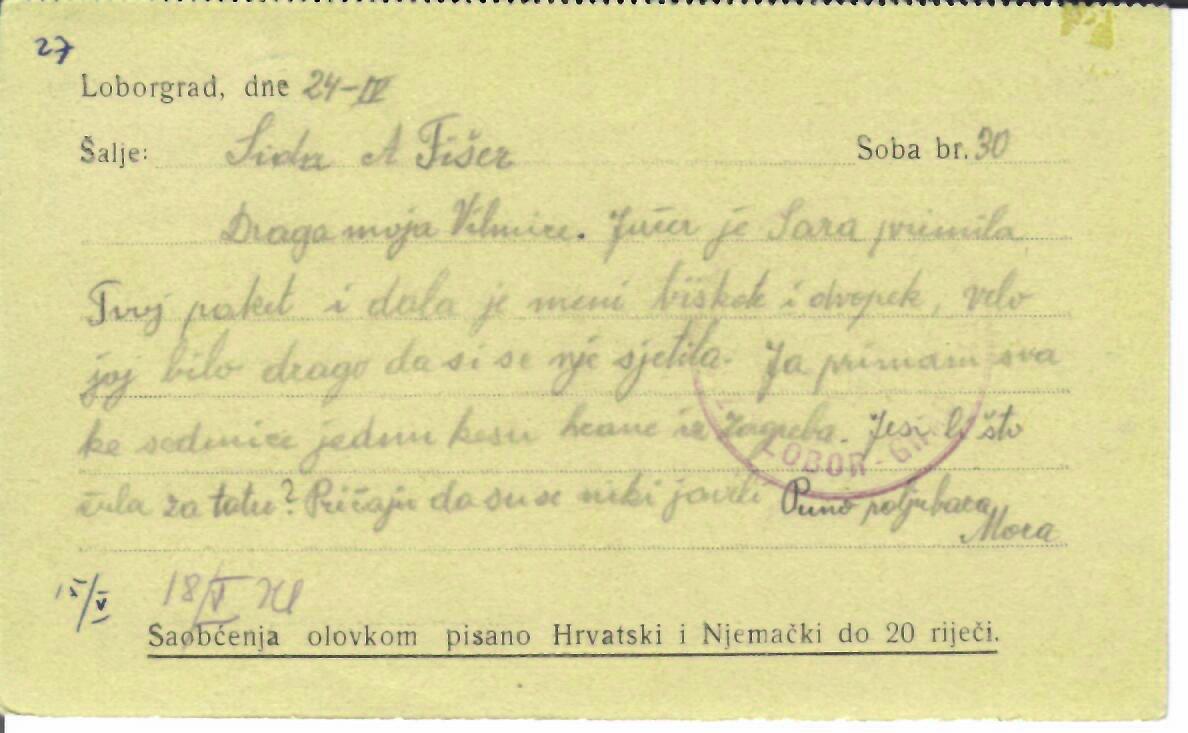 27
Loborgrad, dne 24-IV
Šalje: Sida A Fišer Soba br. 30
Draga moja Vilmice. Jučer je Sara primila
Tvoj paket i dala je meni biškot i dvopek, vrlo
joj bilo drago da si se nje sjetila. Ja primam sva
ke sedmice jednu kesu hrane iz Zagreba. Jesi li što
čula za tatu? Pričaju da su se neki javili Puno poljubaca
LOBOR-GR
15/V 18/V
Saobćenja olovkom pisano Hrvatski i Njemački do 20 riječi.